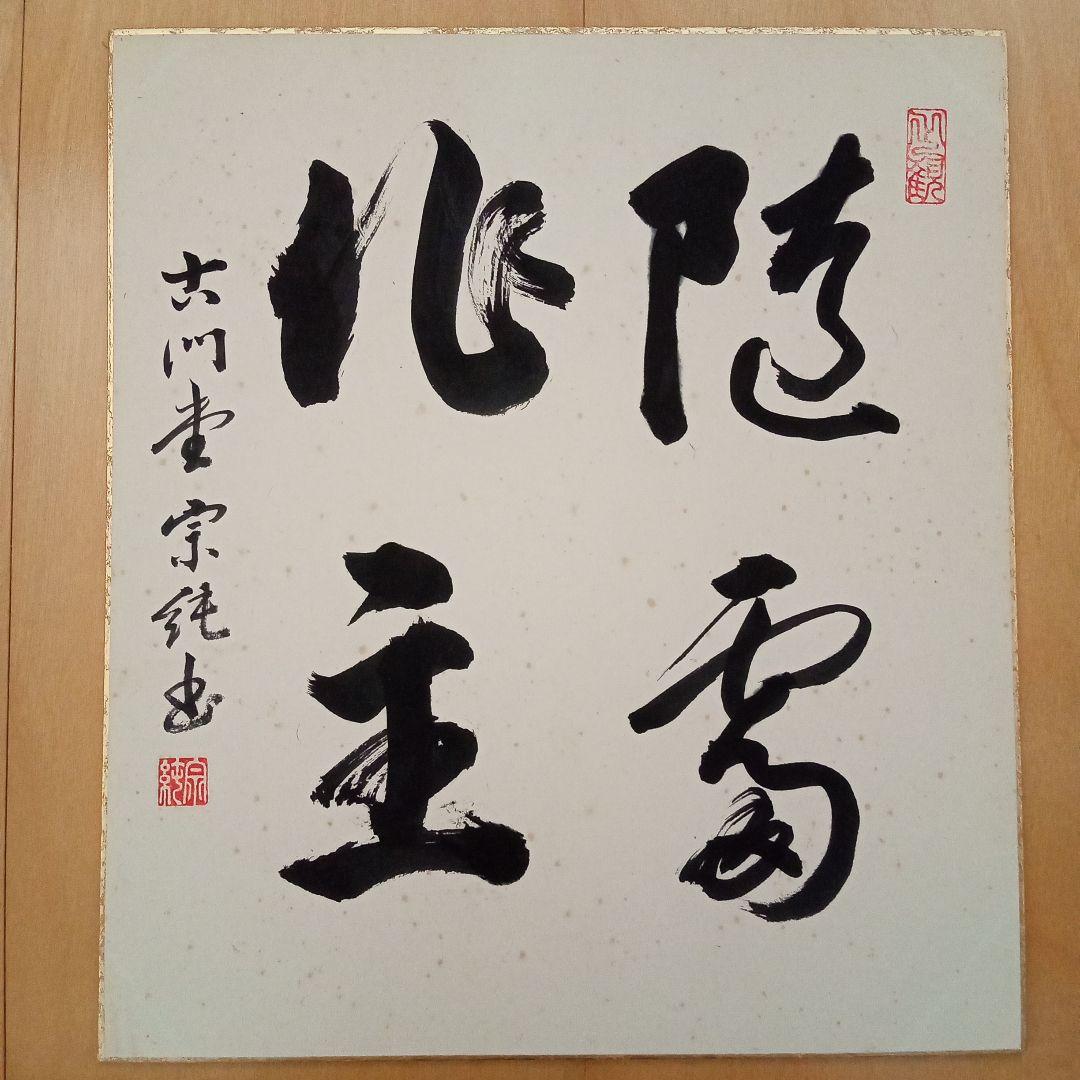 随處
作主
古門堂 宗純書
宗純